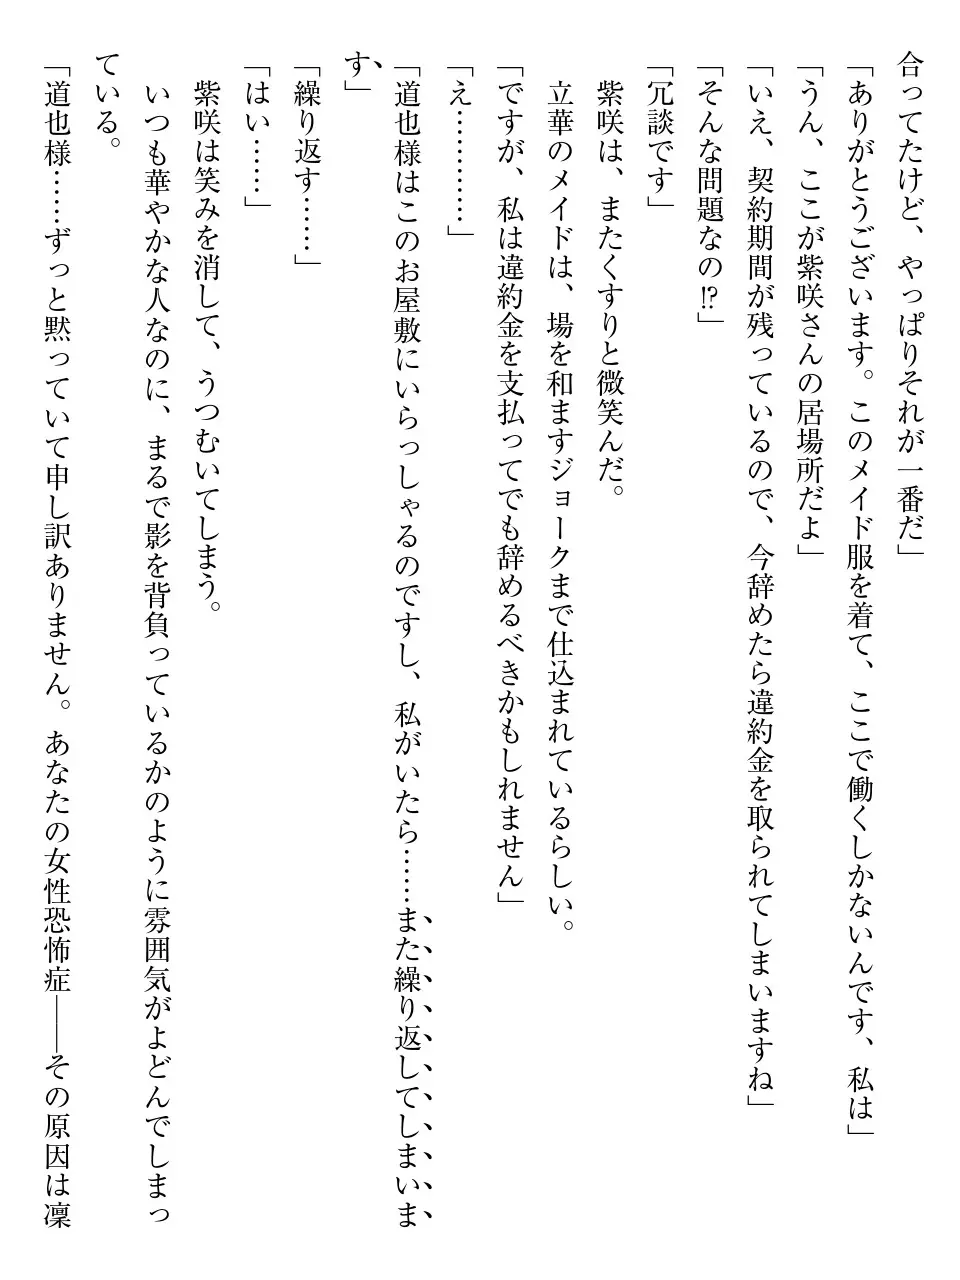 合ってたけど、やっぱりそれが一番だ」
「ありがとうございます。このメイド服を着て、ここで働くしかないんです、私は」
「うん、ここが紫咲さんの居場所だよ」
「いえ、契約期間が残っているので、今辞めたら違約金を取られてしまいますね」
「そんな問題なの!?」
「冗談です」
　紫咲は、またくすりと微笑んだ。
　立華のメイドは、場を和ますジョークまで仕込まれているらしい。
「ですが、私は違約金を支払ってでも辞めるべきかもしれません」
「え…………」
「道也様はこのお屋敷にいらっしゃるのですし、私がいたら……また繰り返してしまいま
す」
「繰り返す……」
「はい……」
　紫咲は笑みを消して、うつむいてしまう。
　いつも華やかな人なのに、まるで影を背負っているかのように雰囲気がよどんでしまっ
ている。
「道也様……ずっと黙っていて申し訳ありません。あなたの女性恐怖症――その原因は凜